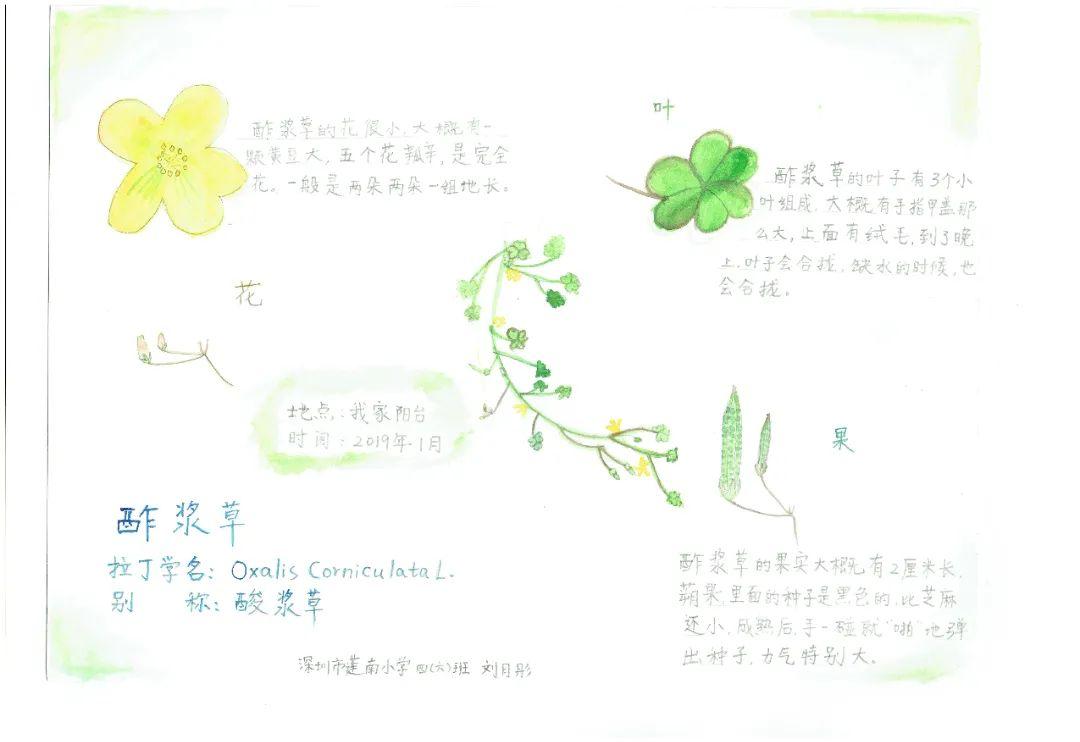 酢浆草的花很小,大概有一
颗黄豆大,五个花瓣,是完全
花。一般是两朵两朵一组地长。
花
叶
酢浆草的叶子有3个小
叶组成,大概有手指甲盖那
么大,上面有绒毛,到了晚
上,叶子会合拢,缺水的时候,也
会合拢。
地点:我家阳台
时间:2019年1月
果
酢浆草的果实大概有2厘米长,
蒴果,里面的种子是黑色的,比芝麻
还小,成熟后,手一碰就“啪”地弹
出种子,力气特别大。
酢浆草
拉丁学名:Oxalis Corniculata L.
别 称:酸浆草
深圳市莲南小学四(六)班 刘月彤